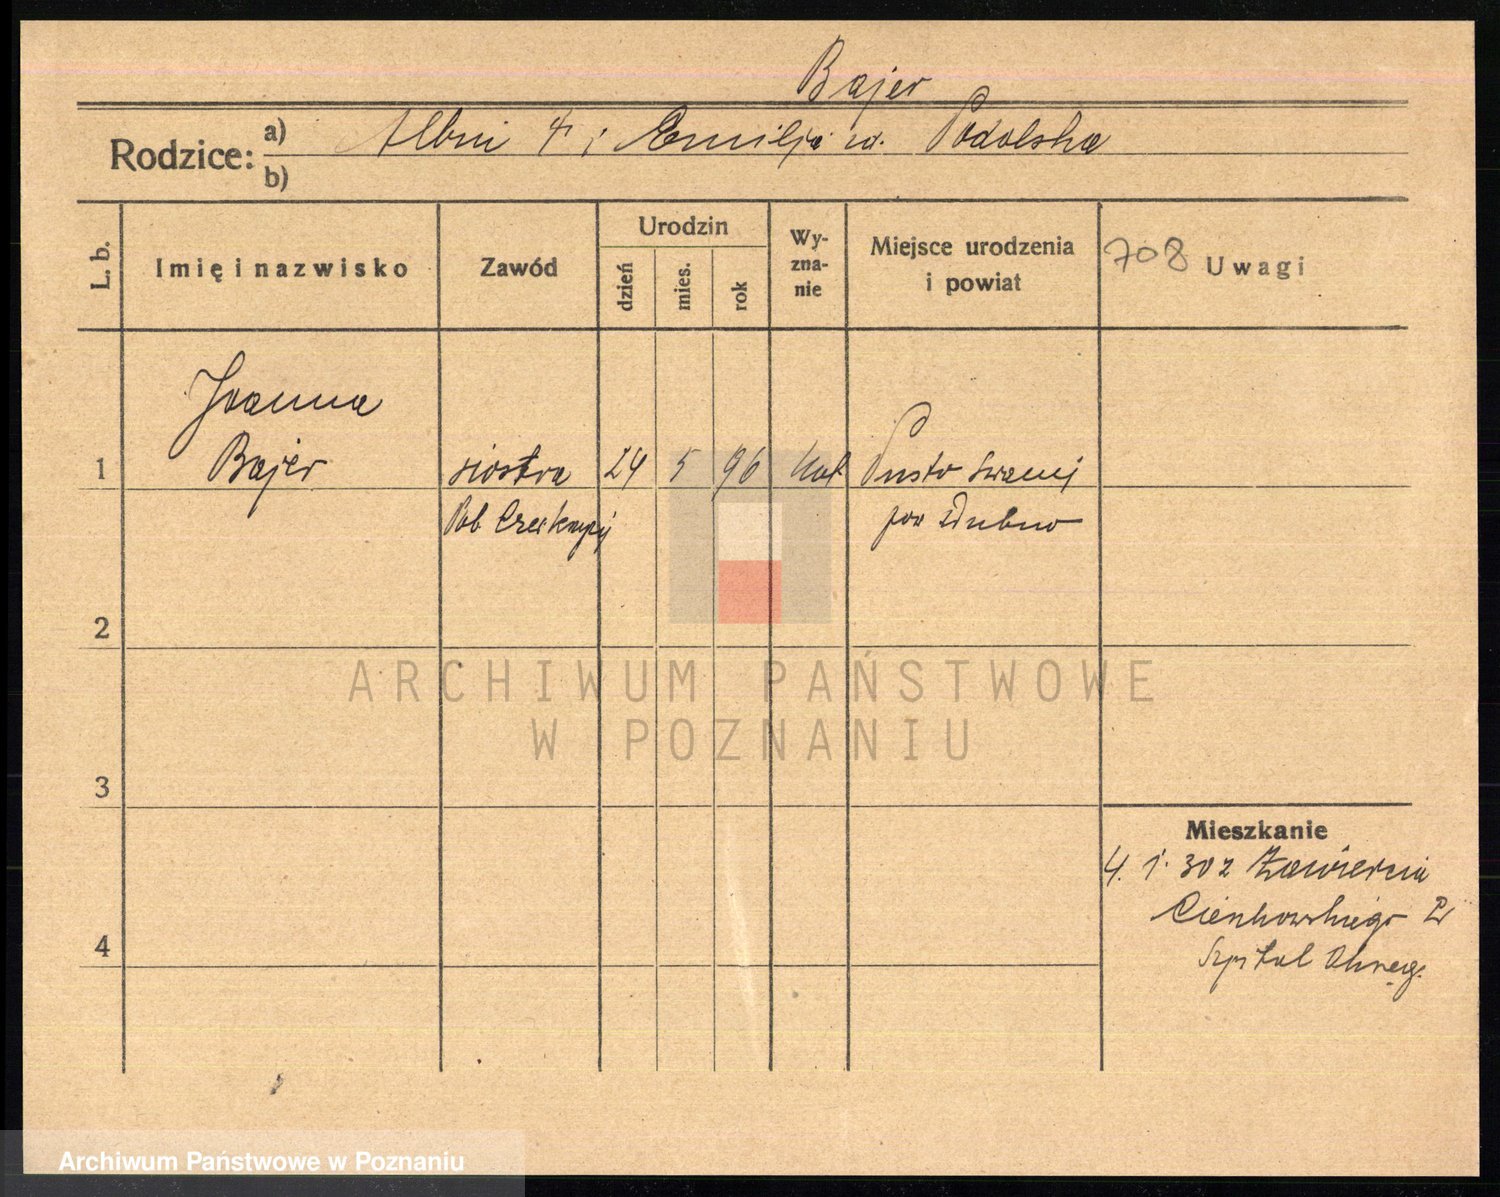 Bajer
Rodzice: a) Albin † i Emilja zd. Podolska
b)
L. b.
Imię i nazwisko
Zawód
Urodzin
dzień
mies.
rok
Wy-
zna-
nie
Miejsce urodzenia
i powiat
708 Uwagi
Joanna
1 Bajer siostra 24 5 96 kat Pusto
pow Dubno
2
ARCHIWUM PAŃSTWOWE
W POZNANIU
3
Mieszkanie
4. 1. 302 Zawiercia
Cienkowskiego
4
Szpital Okręg.
Archiwum Państwowe w Poznaniu